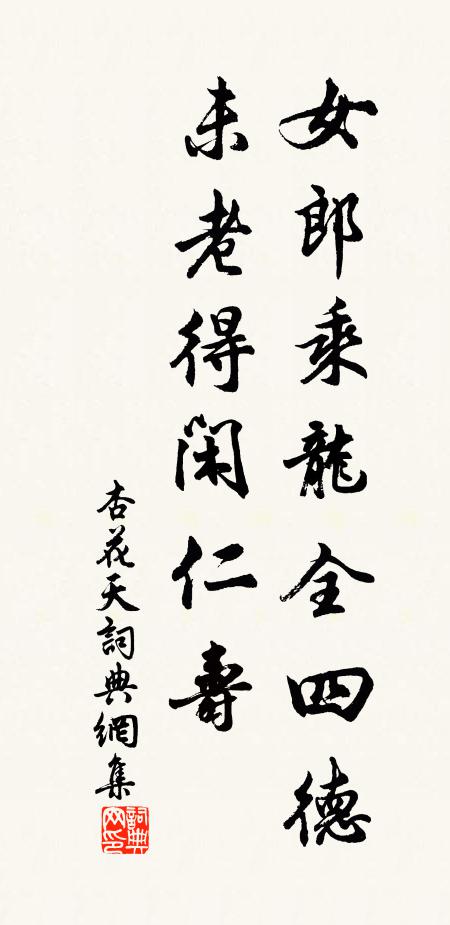 女郎乘龍全四德
未老得閑仁壽
杏花天詞典網集
詞典
网印